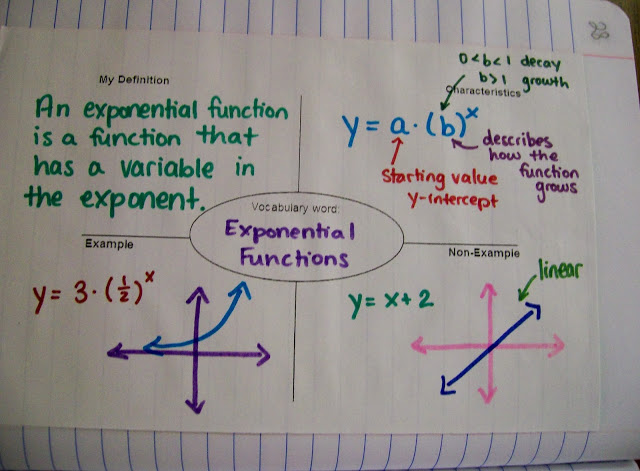 My Definition
An exponential function
is a function that
has a variable in
the exponent.
0<b<1 decay
b>1 growth
Characteristics
y = a · (b)^x
describes
how the
function
grows
Starting value
y-intercept
Vocabulary word:
Exponential
Functions
Example
y = 3 · (1/2)^x
Non-Example
y = x + 2
linear